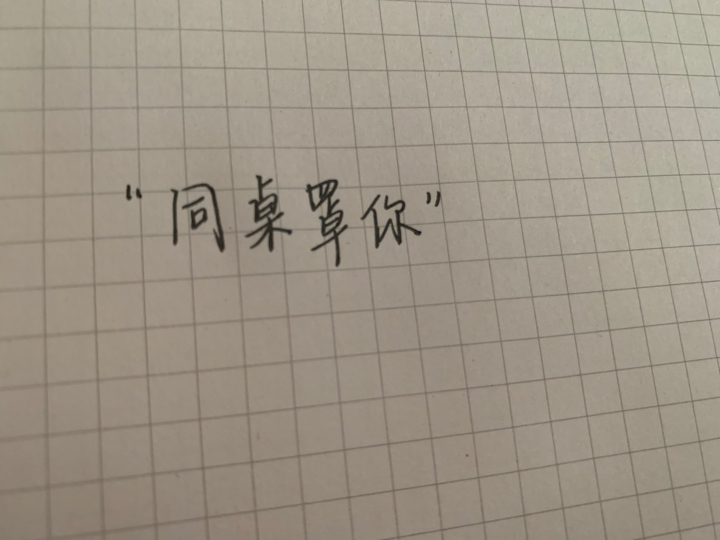 “同桌罩你”